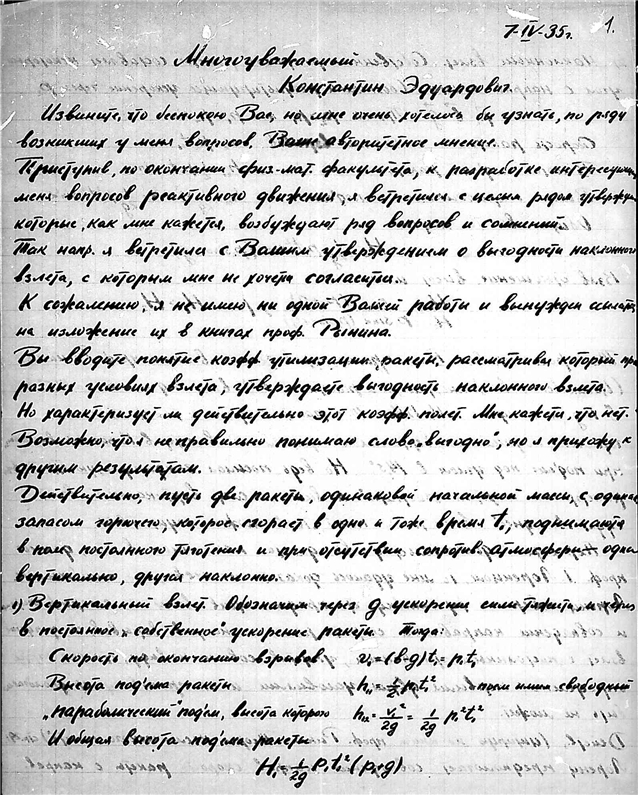 7-IV-35г. 1.
Многоуважаемый
Константин Эдуардович.
Извините, что беспокою Вас, но мне очень хотелось бы узнать, по ряду
возникших у меня вопросов, Ваше авторитетное мнение.
Приступив, по окончании физ-мат. факультета, к разработке интересующих
меня вопросов реактивного движения я встретился с целым рядом утвержден
которые, как мне кажется, возбуждают ряд вопросов и сомнений.
Так напр. я встретился с Вашим утверждением о выгодности наклонного
взлета, с которым мне не хочется согласиться.
К сожалению, я не имею ни одной Вашей работы и вынужден ссылаться
на изложение их в книгах проф. Рынина.
Вы вводите понятие коэфф утилизации ракеты, рассматривая который при
разных условиях взлета, утверждаете выгодность наклонного взлета.
Но характеризует ли действительно этот коэфф. полет. Мне кажется, что нет.
Возможно, что я не правильно понимаю слово „выгодно", но я прихожу к
другим результатам.
Действительно, пусть две ракеты, одинаковой начальной массы, с одинак
запасом горючего, которое сгорает в одно и тоже время t₁, поднимаются
в поле постоянного тяготения и при отсутствии сопротив. атмосферы одна
вертикально, другая наклонно.
1) Вертикальный взлет. Обозначим через g ускорение силы тяжести, и через
в постоянное „собственное" ускорение ракеты. Тогда:
Скорость по окончанию взрывов v₁=(в-g)t₁=p₁t₁
Высота под'ема ракеты h₁₁=½p₁t₁² после имеем свободный
„параболический" под'ем, высота которого h₁₂=v₁²/2g=1/2g p₁²t₁²
И общая высота под'ема ракеты
H₁=1/2g p₁t₁²(p₁+g)